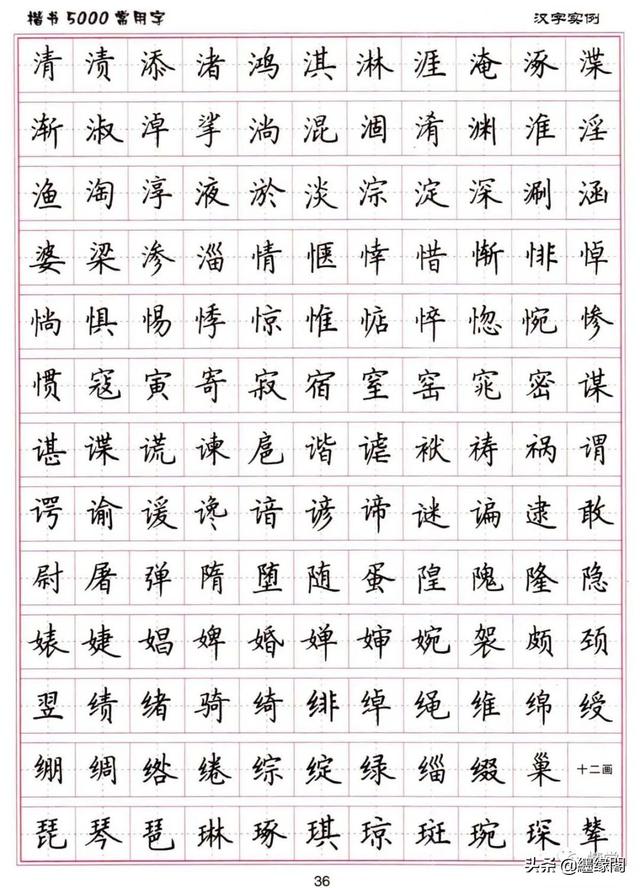 楷书5000常用字 汉字实例
清 渍 添 渚 鸿 淇 淋 涯 淹 涿 渫
渐 淑 淖 挲 淌 混 涸 淆 渊 淮 淫
渔 淘 淳 液 淤 淡 淙 淀 深 涮 涵
婆 梁 渗 淄 情 惬 悻 惜 惭 悱 悼
惝 惧 惕 悸 惊 惟 惦 悴 惚 惋 惨
惯 寇 寅 寄 寂 宿 窒 窑 窕 密 谋
谌 谍 谎 谏 扈 谐 谑 袱 祷 祸 谓
谔 谕 谖 谗 谙 谚 谛 谜 谝 逮 敢
尉 屠 弹 隋 堕 随 蛋 隍 隗 隆 隐
婊 婕 娼 婢 婚 婵 婶 婉 袈 颇 颈
翌 绩 绪 骑 绮 绯 绰 绳 维 绵 绶
绷 绸 绺 绻 综 绽 绿 缁 缀 巢 十二画
琵 琴 琶 琳 琢 琪 琼 斑 琬 琛 辇
头条@纏缘閣
36